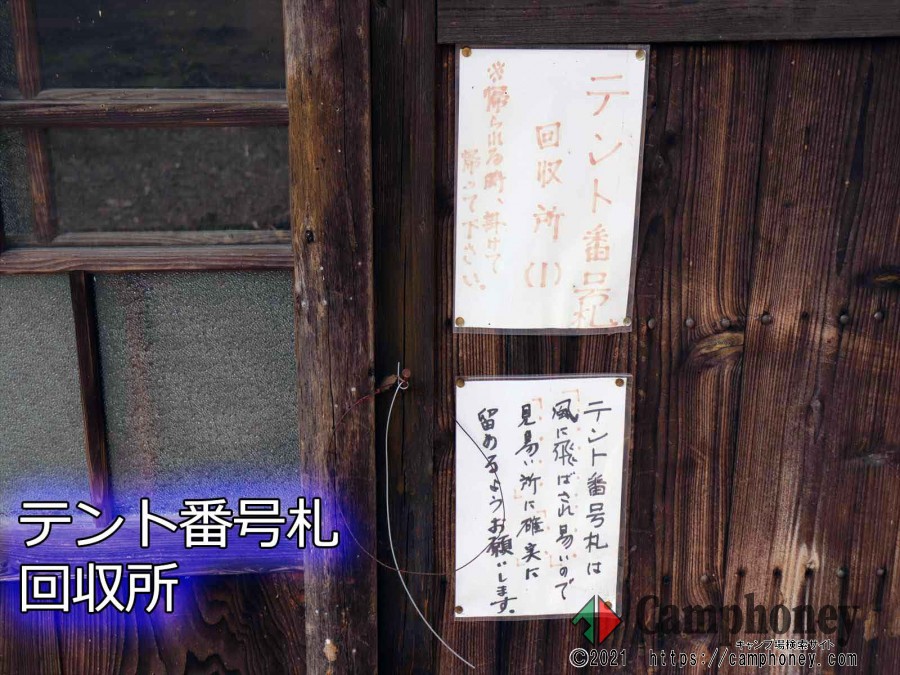 テント番号札
回収所
(1)
※帰られる時、
テント番号札は
風に飛ばされ易いので
見易い所に確実に
留めるようお願いします。
テント番号札
回収所
Camphoney
キャンプ場検索サイト
©2021 https://camphoney.com